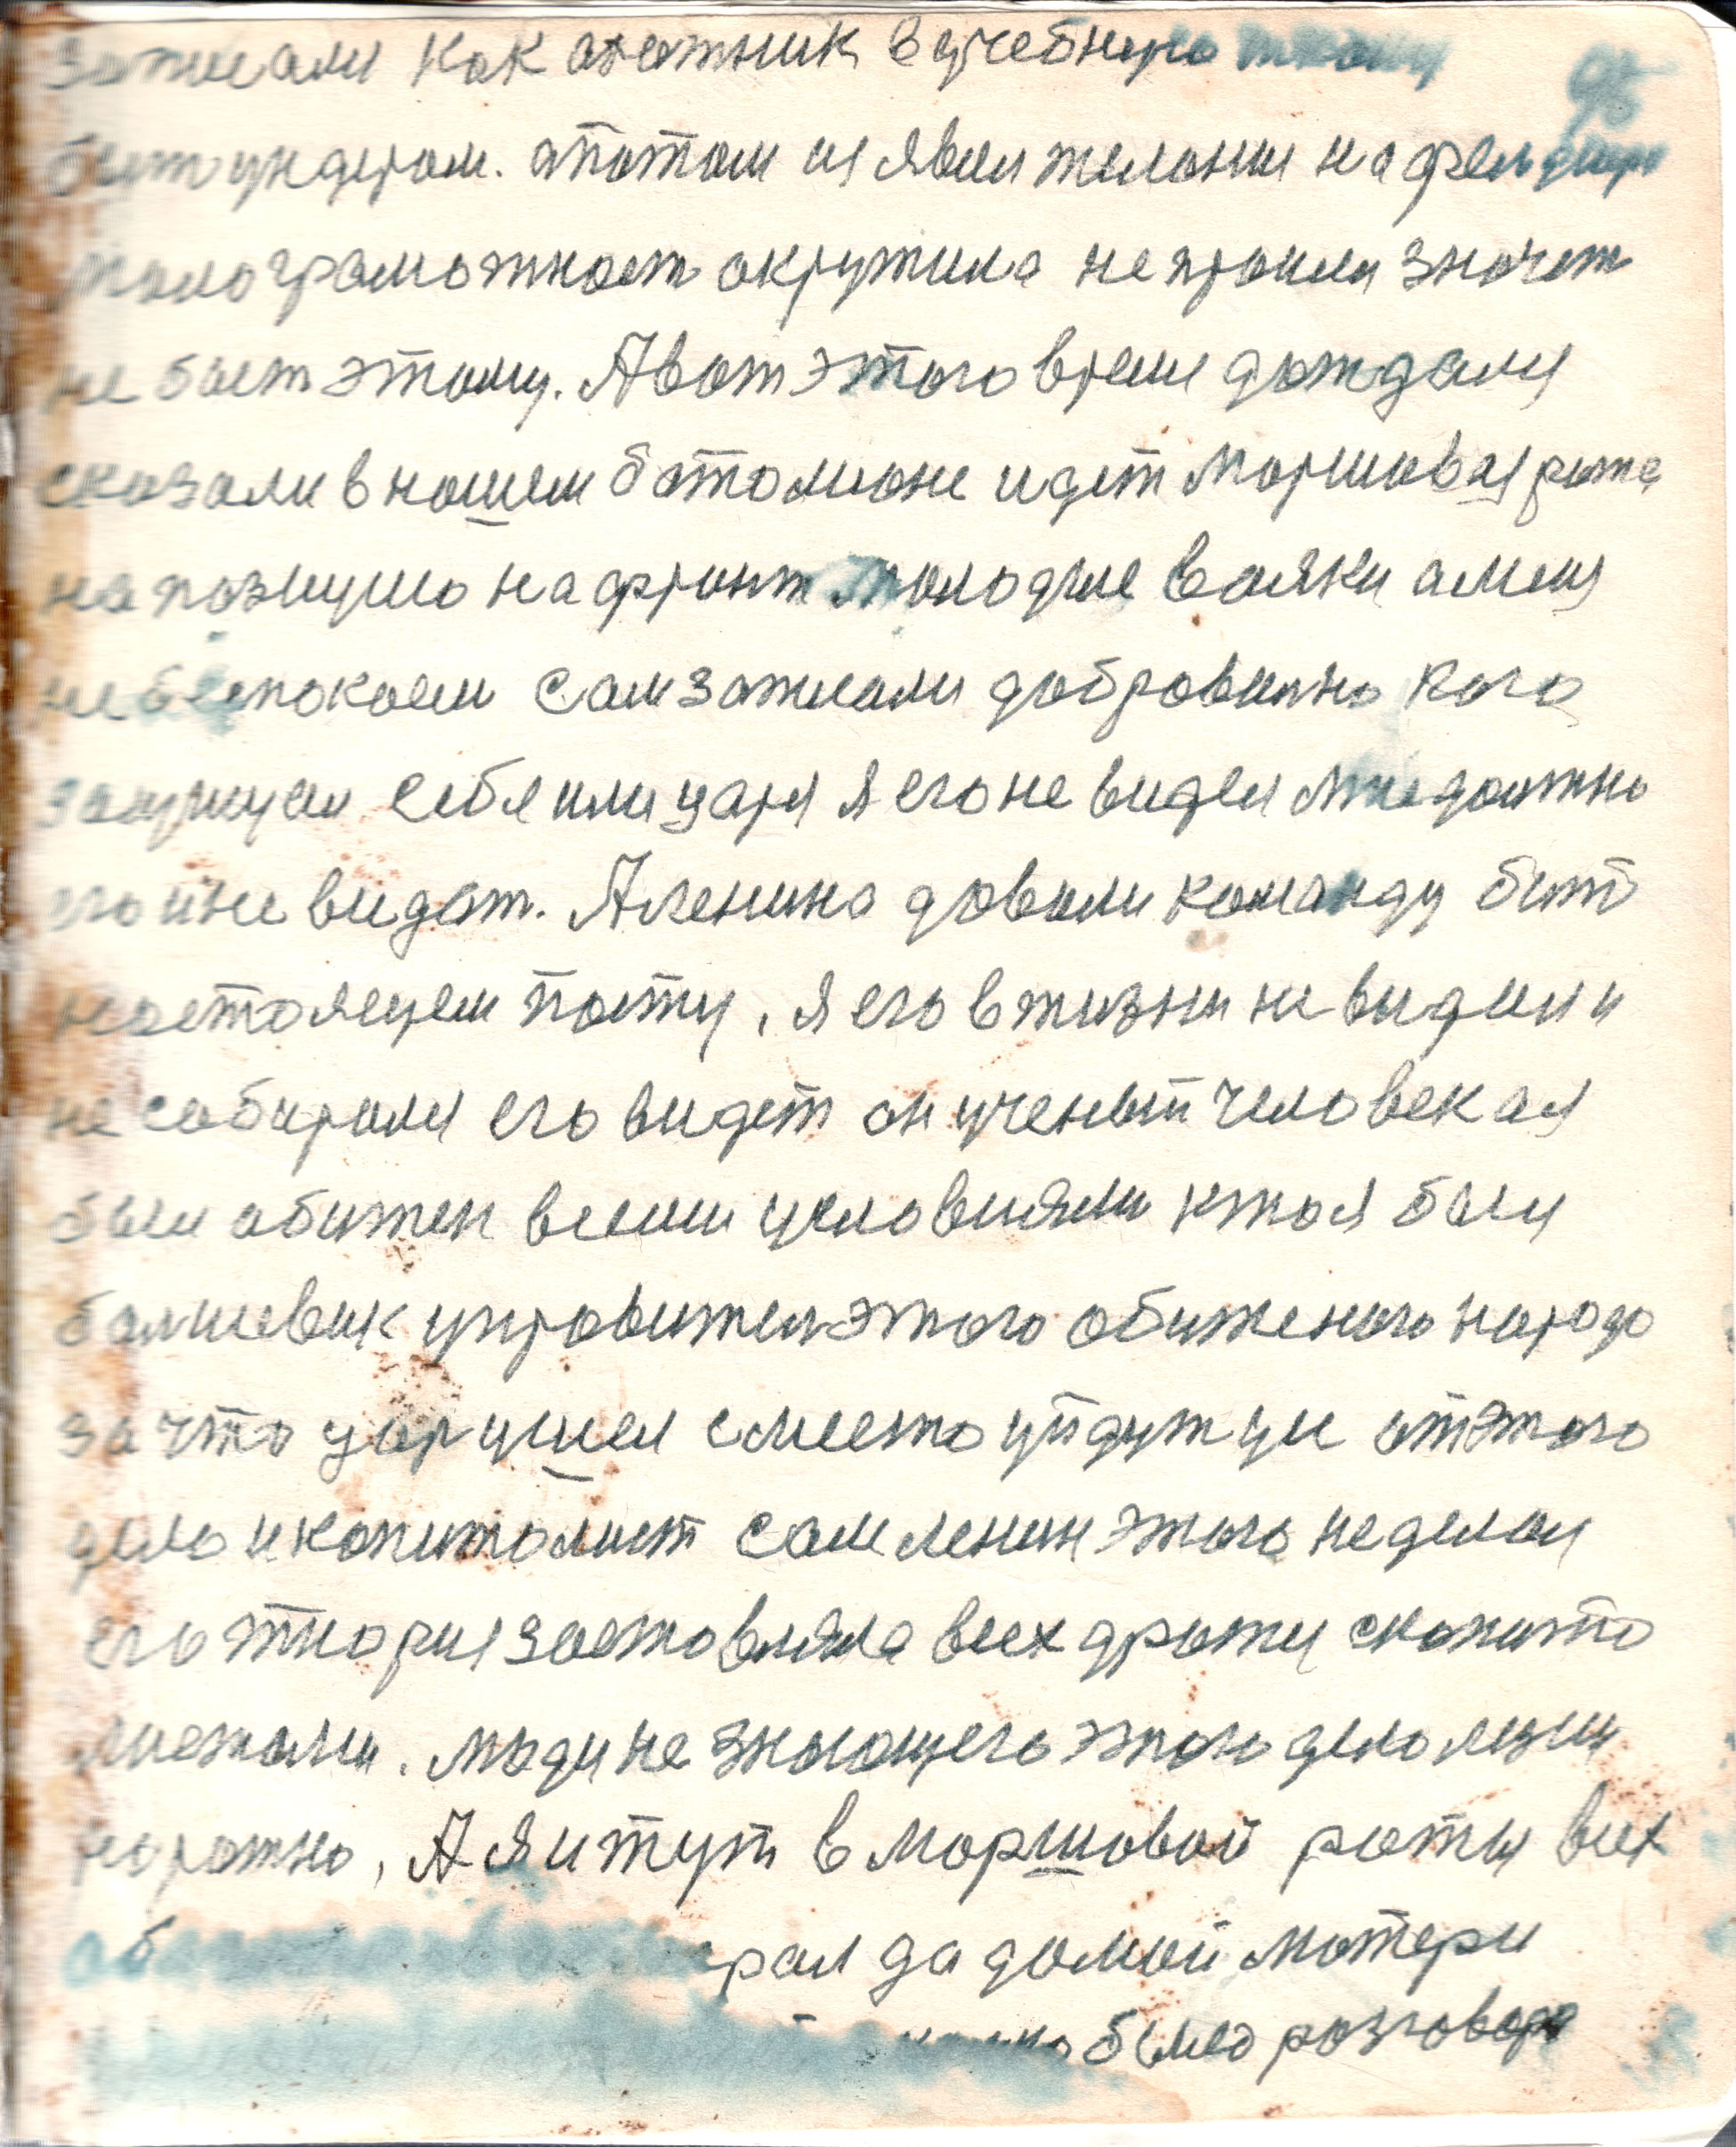 записали как охотник в учебную
быт ундером. а потом изявил желании на
малограмотност окружила непрошел значет
не быт этому. А вот этого время дождался
сказали в нашем батолионе идет маршовая рота
на позицию на фронт молодые вояки а меня
не беспокоем сам записали добровално кого
защищал себя или царя я его не видел мне должно
его и не видат. А ленина давали команду быт
настоящем посту, я его в жизни не видил и
не собираля его видет он ученый человек а я
был абижен всеми условиями кто я был
балшевик управител этого обиженого народа
за что цар ушел с места уйдут и от этого
дела и капиталист сам ленин этого не делал
его теория заставляла всех дратся с капита
листами. люди не знающего этого дела лезли
нарожно, А я и тут в маршовой роты всех
рал да домой матери
было разговора